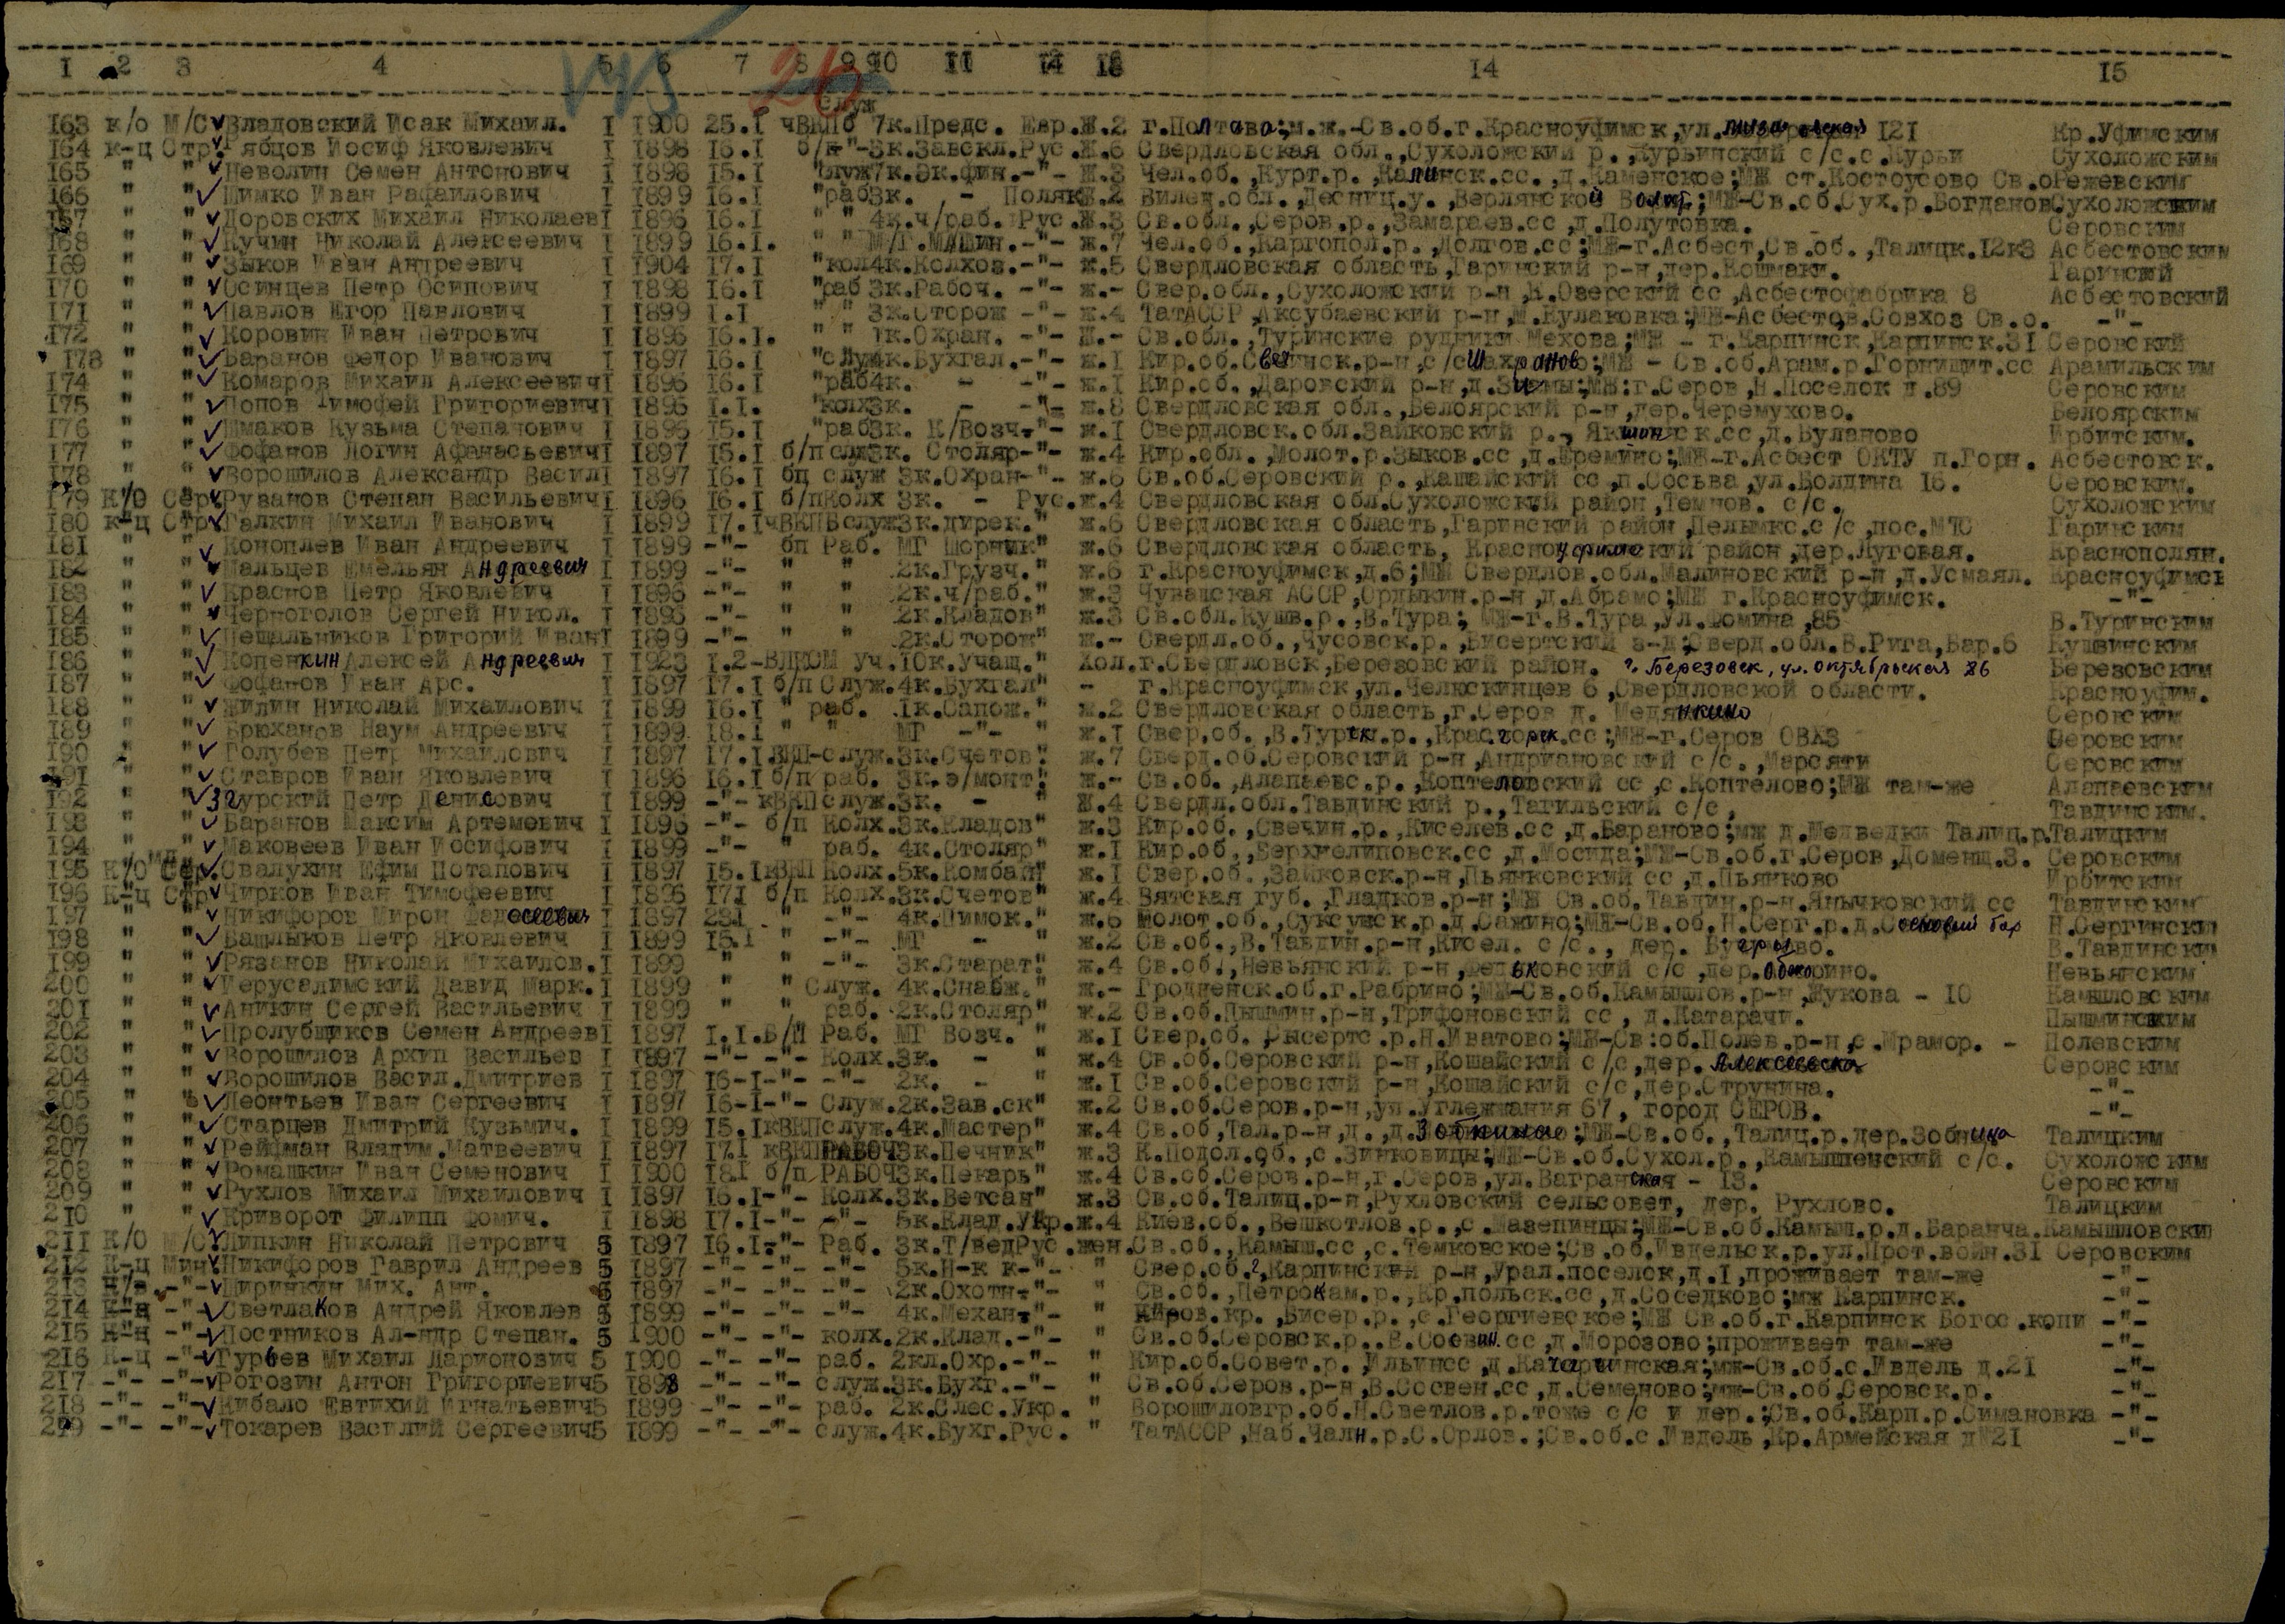 1 2 3 4 5 6 7 8 9 10 11 12 13 14 15
VV5 26
Служ
163 к/о М/С Владовский Исак Михаил. I 1900 25.I чВКПб 7к.Предс. Евр.Ж.2 г.Полтава;м.ж.-Св.об.г.Красноуфимск,ул. 121 Кр.Уфимским
164 к-ц Стр. Рябцов Иосиф Яковлевич I 1898 16.I б/п -"-3к.Завскл.Рус.Ж.6 Свердловская обл.,Сухоложский р.,Курьинский с/с.с.Курьи Сухоложским
165 " " Неволин Семен Антонович I 1898 15.I "служ7к.Эк.фин.-"- Ж.3 Чел.об.,Курт.р.,Калинск.сс.,д.Каменское;МЖ ст.Костоусово Св.о Режевским
166 " " Шимко Иван Рафаилович I 1899 16.I "раб3к. - Поляк Ж.2 Вилен.обл.,Десниц.у.,Верлянской Волас.;МЖ-Св.об.Сух.р.Богданов.Сухоложским
167 " " Доровских Михаил Николаев I 1896 16.I " " 4к.ч/раб. Рус.Ж.3 Св.обл.,Серов.р.,Замараев.сс,д.Полутовка. Серовским
168 " " Кучин Николай Алексеевич I 1899 16.I. " " М/Г.Машин.-"- ж.7 Чел.об.,Каргопол.р.,Долгов.сс;МЖ-г.Асбест,Св.об.,Талицк.12к3 Асбестовским
169 " " Зыков Иван Андреевич I 1904 17.I "кол4к.Колхоз.-"- ж.5 Свердловская область,Гаринский р-н,дер.Кошмаки. Гаринский
170 " " Осинцев Петр Осипович I 1898 16.I "раб 3к.Рабоч. -"- ж.- Свер.обл.,Сухоложский р-н,К.Озерский сс,Асбестофабрика 8 Асбестовский
171 " " Павлов Егор Павлович I 1899 1.I " " 3к.Сторож -"- ж.4 ТатАССР,Аксубаевский р-н,М.Кулаковка;МЖ-Асбестов.Совхоз Св.о. -"-
172 " " Коровин Иван Петрович I 1896 16.I. " " 1к.Охран. -"- Ж.- Св.обл.,Туринские рудники Мехова;МЖ - г.Карпинск,Карпинск.31 Серовский
173 " " Баранов Федор Иванович I 1897 16.I "служ4к.Бухгал.-"- ж.1 Кир.об.Свечинск.р-н,с/сШахраново;МЖ - Св.об.Арам.р.Горнщит.сс Арамильским
174 " " Комаров Михаил Алексеевич I 1896 16.I "раб4к. - -"- ж.1 Кир.об.,Даровский р-н,д.;МЖ:г.Серов,Н.Поселок д.89 Серовским
175 " " Попов Тимофей Григориевич I 1895 1.I. "колх3к. - -"- ж.8 Свердловская обл.,Белоярский р-н,дер.Черемухово. Белоярским
176 " " Шмаков Кузьма Степанович I 1895 15.I "раб3к. К/Возч.-"- ж.1 Свердловск.обл.Зайковский р., Якшинск.сс,д.Буланово Ирбитским.
177 " " Фофанов Логин Афанасьевич I 1897 15.I б/п слж3к. Столяр-"- ж.4 Кир.обл.,Молот.р.Зыков.сс,д.Еремино;МЖ-г.Асбест ОКТУ п.Горн. Асбестовск.
178 " " Ворошилов Александр Васил I 1897 16.I бп служ 3к.Охран-"- ж.6 Св.об.Серовский р.,Кашайский сс,п.Сосьва,ул.Болдина 16. Серовским.
179 К/О Сер. Рузанов Степан Васильевич I 1896 16.I б/пКолх 3к. - Рус.ж.4 Свердловская обл.Сухоложский район,Темнов. с/с. Сухоложским
180 к-ц Стр. Галкин Михаил Иванович I 1899 17.IчВКПБ служ3к.дирек." ж.6 Свердловская область,Гаринский район,Пелымкс.с/с,пос.МЮ Гаринским
181 " " Коноплев Иван Андреевич I 1899 -"- бп Раб. МГ Шорник" ж.6 Свердловская область, Красноуфимский район,дер.Луговая. Краснополян.
182 " " Мальцев Емельян Андреевич I 1899 -"- " " 2к.Грузч." ж.6 г.Красноуфимск,д.6;МЖ Свердлов.обл.Малиновский р-н,д.Усмаял. Красноуфимск
183 " " Краснов Петр Яковлевич I 1896 -"- " " 2к.ч/раб." ж.3 Чувашская АССР,Ордыкин.р-н,д.Абрамс;МЖ г.Красноуфимск. -"-
184 " " Черноголов Сергей Никол. I 1895 -"- " " 2к.Кладов" ж.3 Св.обл.Кушв.р.,В.Тура; МЖ-г.В.Тура,ул.Фомина,85 В.Туринским
185 " " Пещальников Григорий Иван I 1899 -"- " " 2к.Сторож" ж.- Свердл.об.,Чусовск.р.,Бисертский з-д;Сверд.обл.В.Рига,Вар.6 Кушвинским
186 " " Копенкин Алексей Андреевич I 1923 1.2-ВЛКСМ уч.10к.учащ." Хол.г.Свердловск,Березовский район. г.Березовск, ул.Октябрьская 86 Березовским
187 " " Фофанов Иван Арс. I 1897 17.I б/п Служ.4к.Бухгал" - г.Красноуфимск,ул.Челюскинцев 6,Свердловской области. Красноуфим.
188 " " Жилин Николай Михайлович I 1899 16.I " раб. 1к.Сапож." ж.2 Свердловская область,г.Серов д. Медянкино Серовским
189 " " Брюханов Наум Андреевич I 1899 18.I " " МГ -"- " ж.1 Свер.об.,В.Турин.р.,Красногорск.сс;МЖ-г.Серов ОВАЗ Серовским
190 " " Голубев Петр Михайлович I 1897 17.I.ВКП-служ.3к.Счетов" ж.7 Сверд.об.Серовский р-н,Андриановский с/с.,Марсяти Серовским
191 " " Ставров Иван Яковлевич I 1896 16.I б/п раб. 3к.э/монт" ж.- Св.об.,Алапаевс.р.,Коптеловский сс,с.Коптелово;МЖ там-же Алапаевским
192 " " Згурский Петр Денисович I 1899 -"- кВКПслуж.3к. - " Ж.4 Свердл.обл.Тавдинский р.,Тагильский с/с, Тавдинским.
193 " " Баранов Максим Артемович I 1896 -"- б/п Колх.3к.Кладов" ж.3 Кир.об.,Свечин.р.,Киселев.сс,д.Бараново;мж д.Медведки Талиц.р.Талицким
194 " " Маковеев Иван Иосифович I 1899 -"- " раб. 4к.Столяр" ж.1 Кир.об.,Верхнелиповск.сс,д.Мосида;МЖ-Св.об.г.Серов,Доменщ.3. Серовским
195 К/О Сер. Свалухин Ефим Потапович I 1897 15.IкВКП Колх.5к.Комбайн" ж.1 Свер.об.,Зайковск.р-н,Пьянковский сс,д.Пьянково Ирбитским
196 К-ц Стр Чирков Иван Тимофеевич I 1895 17.I б/п Колх.3к.Счетов" ж.4 Вятская губ.,Гладков.р-н;МЖ Св.об.Тавдин.р-н.Янычковский сс Тавдинским
197 " " Никифоров Мирон I 1897 23.1 " -"- 4к.Пимок." ж.6 Молот.об.,Суксунск.р.д.Сажино;МЖ-Св.об.Н.Серг.р.д.Сосновый бор Н.Сергински
198 " " Башлыков Петр Яковлевич I 1899 15.I " -"- МГ - " ж.2 Св.об.,В.Тавдин.р-н,Кисел. с/с., дер. В.Тавдински
199 " " Рязанов Николай Михайлов. I 1899 " " -"- 3к.Старат" ж.4 Св.об.,Невьянский р-н,Федьковский с/с,дер. Невьянским
200 " " Герусалимский Давид Марк. I 1899 " " Служ. 4к.Снабж." ж.- Гродненск.об.г.Рабрино;МЖ-Св.об.Камышлов.р-н,Жукова - 10 Камышловским
201 " " Аникин Сергей Васильевич I 1899 " " раб. 2к.Столяр" ж.2 Св.об.Пышмин.р-н,Трифоновский сс, д.Катарачи. Пышминским
202 " " Пролубщиков Семен Андреев I 1897 1.I.Б/П Раб. МГ Возч. " ж.1 Свер.об. Сысертс.р.Н.Иватово;МЖ-Св:об.Полев.р-н,с.Мрамор. - Полевским
203 " " Ворошилов Архип Васильев I 1897 -"- -"- Колх.3к. - " ж.4 Св.об.Серовский р-н,Кошайский с/с,дер. Алексеевска Серовским
204 " " Ворошилов Васил.Дмитриев I 1897 16-I-"- -"- 2к. - " ж.1 Св.об.Серовский р-н,Кошайский с/с,дер.Струнина. -"-
205 " " Леонтьев Иван Сергеевич I 1897 16-I-"- Служ.2к.Зав.ск" ж.2 Св.об.Серов.р-н,ул.Углежжания 67, город СЕРОВ. -"-
206 " " Старцев Дмитрий Кузьмич. I 1899 15.IкВКПслуж.4к.Мастер" ж.4 Св.об,Тал.р-н,д.,д.Зобнино;МЖ-Св.об.,Талиц.р.дер.Зобнина Талицким
207 " " Рейфман Владим.Матвеевич I 1897 17.I кВКПРАБОЧ3к.Печник" ж.3 К.Подол.об.,с.Зинковицы;МЖ-Св.об.Сухол.р.,Камышенский с/с. Сухоложским
208 " " Ромашкин Иван Семенович I 1900 18.I б/п РАБОЧ3к.Пекарь" ж.4 Св.об.Серов.р-н,г.Серов,ул.Вагранская - 13. Серовским
209 " " Рухлов Михаил Михайлович I 1897 16.I-"- Колх.3к.Ветсан" ж.3 Св.об.Талиц.р-н,Рухловский сельсовет, дер. Рухлово. Талицким
210 " " Криворот Филипп Фомич. I 1898 17.I-"- -"- 5к.Клад.Укр.ж.4 Киев.об.,Вешкотлов.р.,с.Мазепинцы;МЖ-Св.об.Камыш.р.д.Баранча.Камышловски
211 К/О М/С Липкин Николай Петрович 5 1897 16.I-"- Раб. 3к.Т/ведРус.жен.Св.об.,Камыш.сс,с.Темковское;Св.об.Ивдельск.р.ул.Прот.войн.31 Серовским
212 К-ц Мин. Никифоров Гаврил Андреев 5 1897 -"- -"- -"- 5к.Н-к к-"- " Свер.об.г,Карпинский р-н,Урал.поселок,д.1,проживает там-же -"-
213 К/в -"- Ширинкин Мих. Ант. 5 1897 -"- -"- -"- 2к.Охотн-"- " Св.об.,Петрокам.р.,Кр.польск.сс,д.Соседково;мж Карпинск. -"-
214 К-ц -"- Светлаков Андрей Яковлев 5 1899 -"- -"- -"- 4к.Механ-"- " Киров.кр.,Бисер.р.,с.Георгиевское;МЖ Св.об.г.Карпинск Богос.копи -"-
215 К-ц -"- Постников Ал-ндр Степан. 5 1900 -"- -"- колх.2к.Клад.-"- " Св.об.Серовск.р..В.Сосвин.сс,д.Морозово;проживает там-же -"-
216 К-ц -"- Гурьев Михаил Ларионович 5 1900 -"- -"- раб. 2кл.Охр.-"- " Кир.об.Совет.р.,Ильинсс,д.;мж-Св.об.с.Ивдель д.21 -"-
217 -"- -"- Рогозин Антон Григориевич5 1898 -"- -"- служ.3к.Бухг.-"- " Св.об.Серов.р-н,В.Сосвен.сс,д.Семеново;мж-Св.об.Серовск.р. -"-
218 -"- -"- Кибало Евтихий Игнатьевич5 1899 -"- -"- раб. 2к.Слес.Укр. " Ворошиловгр.об.Н.Светлов.р.тоже с/с и дер.;Св.об.Карп.р.Симановка -"-
219 -"- -"- Токарев Василий Сергеевич5 1899 -"- -"- служ.4к.Бухг.Рус. " ТатАССР,Наб.Чалн.р.С.Орлов.;Св.об.с.Ивдель,Кр.Армейская д№21 -"-